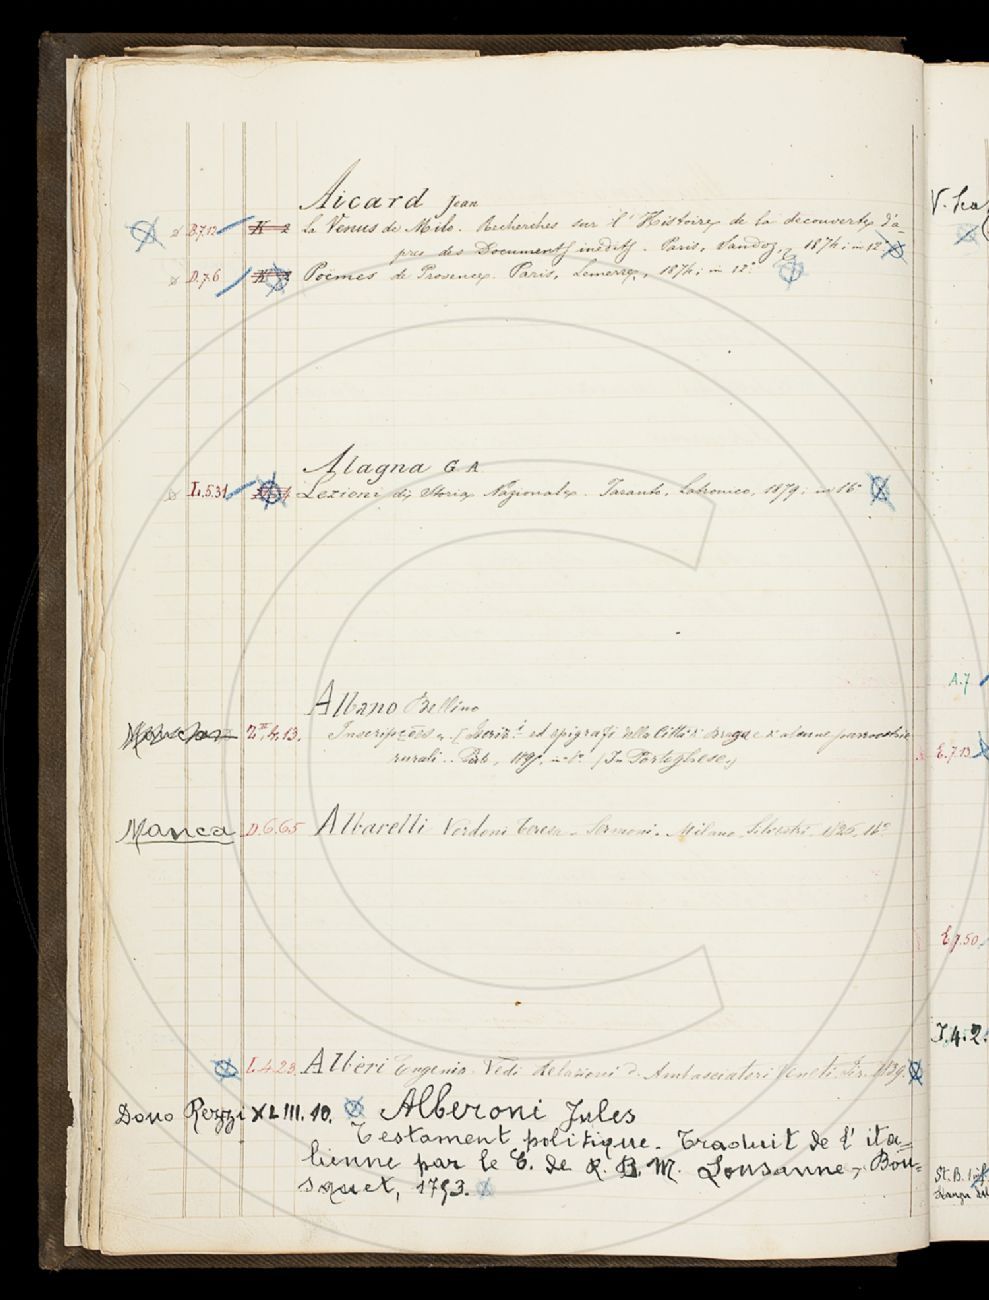 Aicard Jean
D.7.12 K 2 La Venus de Milo. Recherches sur l'Histoire de la decouverte d'a-
pres des Documents inedits. Paris, Sandoz, 1874; in 12°
D.7.6 K 2 Poèmes de Provence. Paris, Lemerre, 1874; in 12°
Alagna G A
L.5.31 Lezioni di Storia Nazionale. Taranto, Latronico, 1879; in 16°
Albano Bellino
4.13. Inscripções ed epigrafi della Città di Braga e d'alcune parrocchie
rurali.. in (In Portoghese)
Manca D.6.65 Albarelli Vordoni Teresa. Sermoni. Milano Silvestri. 1826, 16°
I.4.23 Albèri Eugenio. Vedi Relazioni d. Ambasciatori Veneti. 1839.
Dono Rezzi XLIII.10. Alberoni Jules
Testament politique. Traduit de l'ita=
lienne par le C. de R. B. M. Lousanne, Bou=
squet, 1753.
V. Sca
A.7
E.7.13
E.7.50
I.4.2.
St. B.